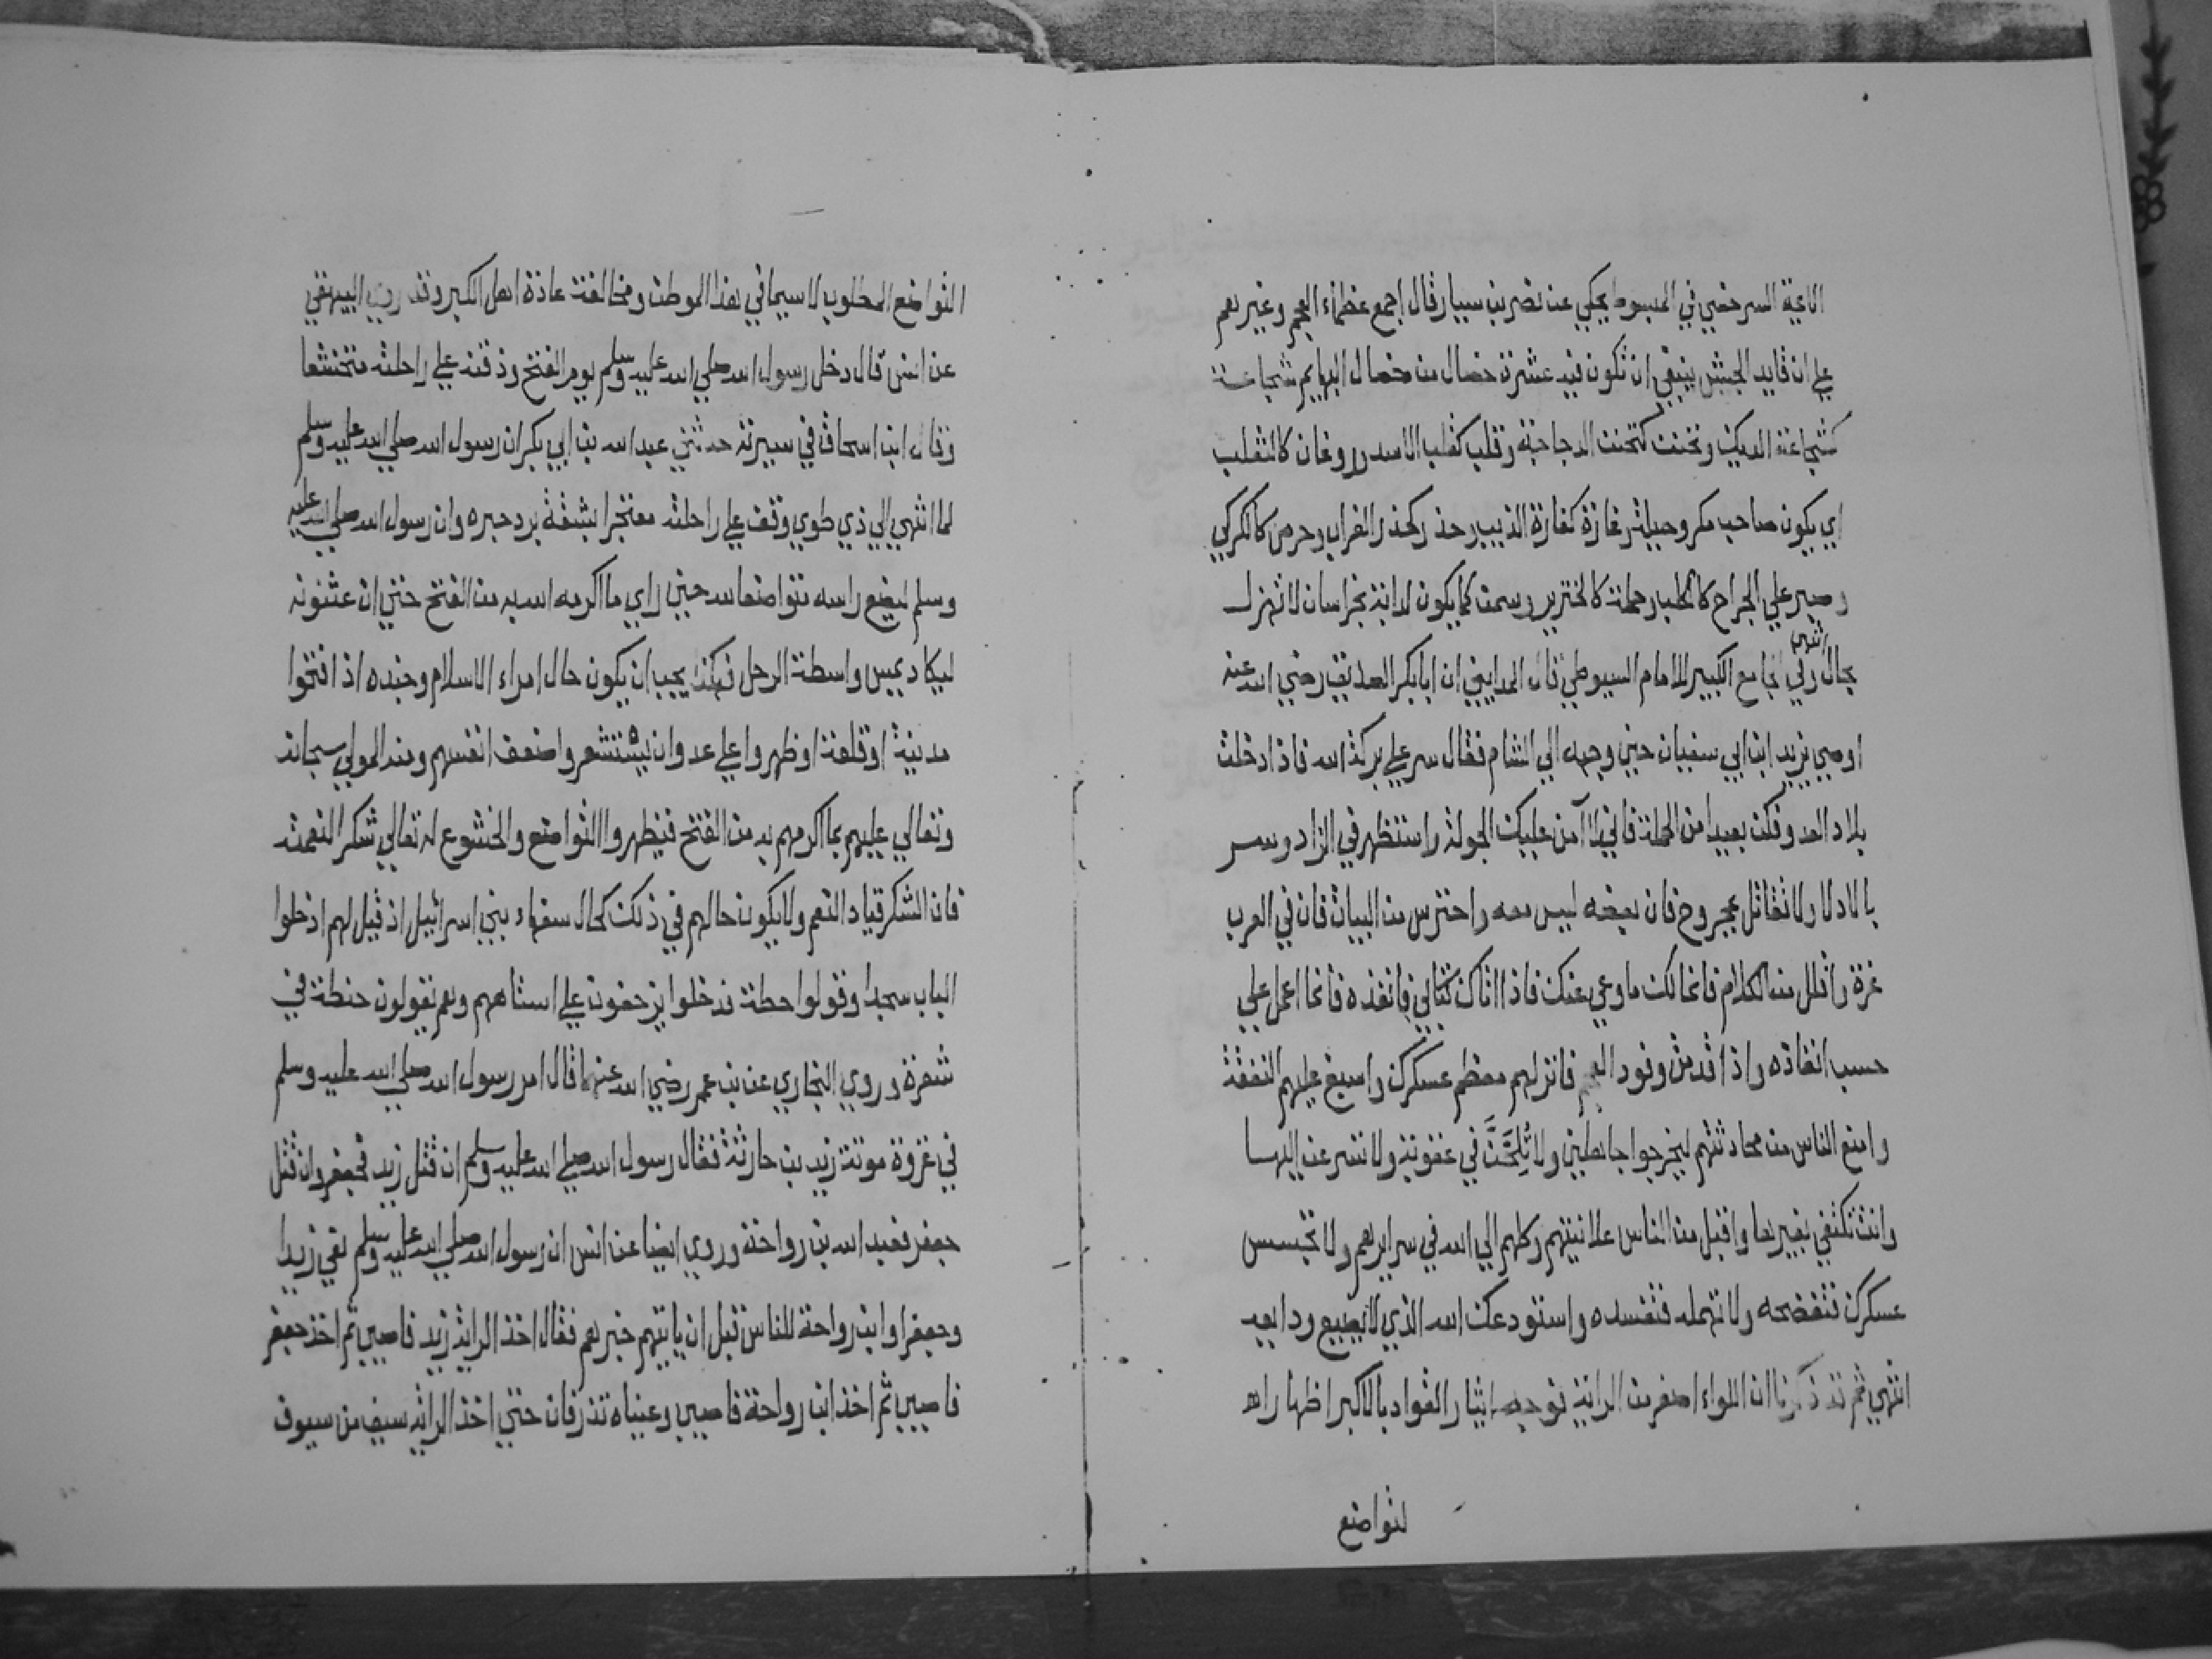 الايمة السرخسي في المبسوط يحكي عن نصر بن سيار قال اجمع عظماء العجم وغيرهم
علي ان قايد الجيش ينبغي ان تكون فيه عشرة خصال من خصال البهايم شجاعة
كشجاعة الديك وتحنن كتحنن الدجاجة وقلب كقلب الاسد وروغان كالثعلب
اي يكون صاحب مكر وحيلة وغارة كغارة الذيب وحذر كحذر الغراب وحرص كالكركي
وصبر علي الجراح كالكلب وحملة كالخنزير وسمن كما يكون لدابة بخراسان لا تهزل
بحال انتهي وفي الجامع الكبير للامام السيوطي قال المدايني ان ابا بكر الصديق رضي الله عنه
اوصي يزيد ابن ابي سفيان حين وجهه الي الشام فقال سر علي بركة الله فاذا دخلت
بلاد العدو فكن بعيدا من الحملة فاني لا آمن عليك الجولة واستظهر في الزاد وسر
بالادلا ولا تقاتل بمجروح فان بعضه ليس معه واحترس من البيات فان في العرب
غرة واقلل من الكلام فانما لك ما وعي عنك فاذا اتاك كتابي فانفذه فانما اعمل علي
حسب انفاذه واذا قدمت وفود العجم فانزلهم معظم عسكرك واسبغ عليهم النفقة
وامنع الناس من محادثتهم ليخرجوا جاهلين ولا تُلِحَّنَّ في عقوبة ولا تسرعن اليها
وانت تكتفي بغيرها واقبل من الناس علانيتهم وكلهم الي الله في سرايرهم ولا تجسس
عسكرك فتفضحه ولا تهمله فتفسده واستودعك الله الذي لا يضيع ودايعه
انتهي ثم قد ذكرنا ان اللواء اصغر من الراية توجيه ايثار القواد بالاكبر اظهاراه
لتواضع
التواضع المطلوب لا سيما في هذا الموطن ومخالفة عادة اهل الكبر وقد روي البيهقي
عن انس قال دخل رسول الله صلي الله عليه وسلم يوم الفتح وذقنه علي راحلته متخشعا
وقال ابن اسحاق في سيرته حدثني عبد الله بن ابي بكر ان رسول الله صلي الله عليه وسلم
لما انتهي الي ذي طوي وقف علي راحلته معتجرا بشقة برد حبره وان رسول الله صلي الله عليه
وسلم ليضع راسه تواضعا لله حين راي ما اكرمه الله به من الفتح حتي ان عثنونه
ليكاد يمس واسطة الرحل فهكذا يجب ان يكون حال امراء الاسلام وجنده اذا فتحوا
مدينة او قلعة او ظهروا علي عدو ان يستشعروا ضعف انفسهم ومنه المولي سبحانه
وتعالي عليهم بما اكرمهم به من الفتح فيظهروا التواضع والخشوع له تعالي شكر النعمته
فان الشكر قياد النعم ولا يكون حالهم في ذلك كحال سفهاء بني اسرائيل اذ قيل لهم ادخلوا
الباب سجدا وقولوا حطة فدخلوا يزحفون علي استاههم وهم يقولون حنطة في
شعرة وروي البخاري عن بن عمر رضي الله عنهما قال امر رسول الله صلي الله عليه وسلم
في غزوة موتة زيد بن حارثة فقال رسول الله صلي الله عليه وسلم ان قتل زيد فجعفر وان قتل
جعفر فعبد الله بن رواحة وروي ايضا عن انس ان رسول الله صلي الله عليه وسلم نعي زيدا
وجعفرا وابن رواحة للناس قبل ان ياتيهم خبرهم فقال اخذ الراية زيد فاصيب ثم اخذ جعفر
فاصيب ثم اخذ ابن رواحة فاصيب وعيناه تذرفان حتي اخذ الراية سيف من سيوف